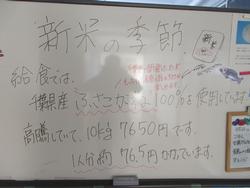 新米の季節
給食では、
千葉県産 ふさこがね 100%を使用しています
高騰していて、10kg 7650円です。
1人分約 76.5円 かかっています。